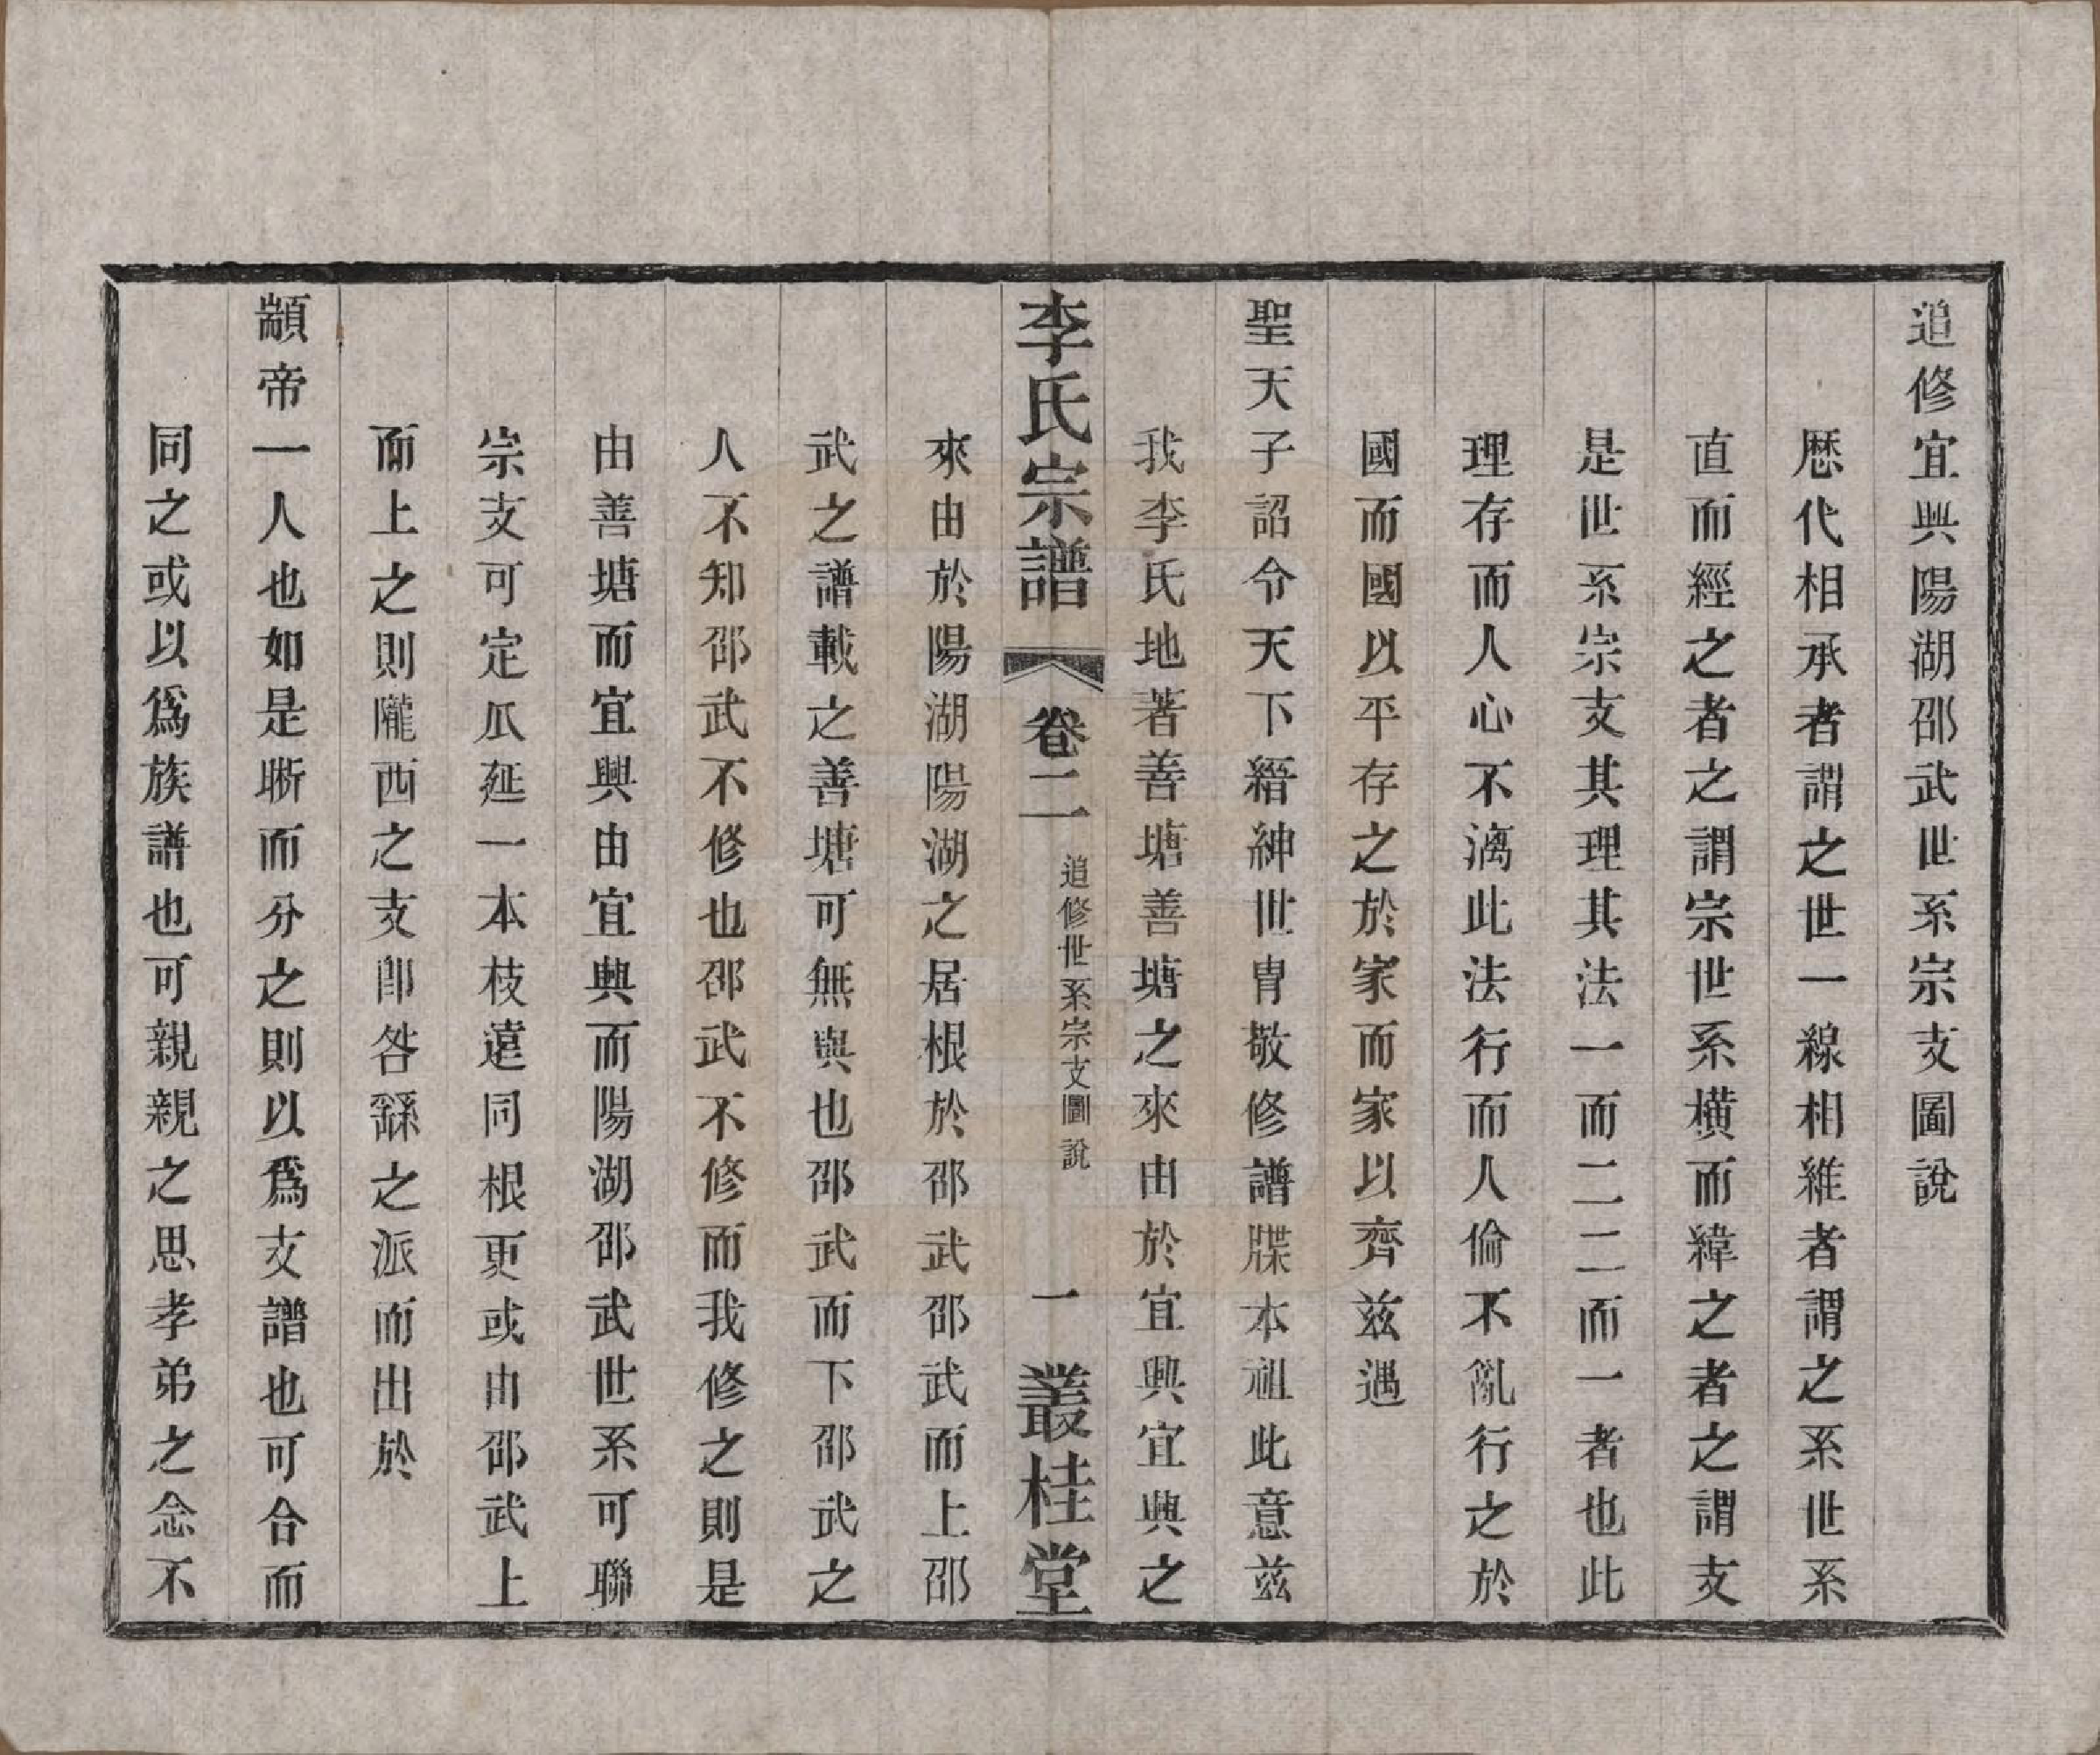 追修宜興陽湖邵武世系宗支圖說
歷代相承者謂之世一線相維者謂之系世系
直而經之者之謂宗世系橫而緯之者之謂支
是世系宗支其理其法一而二二而一者也此
理存而人心不漓此法行而人倫不亂行之於
國而國以平存之於家而家以齊兹遇
聖天子詔令天下縉紳世胄敬修譜牒本祖此意兹
我李氏地著善塘善塘之來由於宜興宜興之
李氏宗譜 卷二 追修世系宗支圖說 一 叢桂堂
來由於陽湖陽湖之居根於邵武邵武而上邵
武之譜載之善塘可無與也邵武而下邵武之
人不知邵武不修也邵武不修而我修之則是
由善塘而宜興由宜興而陽湖邵武世系可聯
宗支可定瓜延一本枝遠同根更或由邵武上
而上之則隴西之支卽咎繇之派而出於
顓帝一人也如是晰而分之則以爲支譜也可合而
同之或以爲族譜也可親親之思孝弟之念不